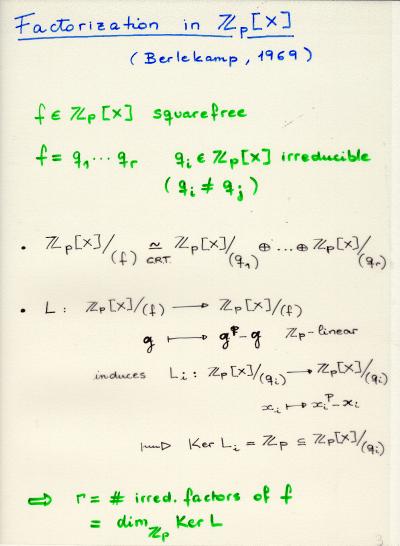 Factorization in ℤp[x]
(Berlekamp, 1969)
f ∈ ℤp[x] squarefree
f = q₁ ⋯ qᵣ qᵢ ∈ ℤp[x] irreducible
(qᵢ ≠ qⱼ)
• ℤp[x]/(f) ≃ ℤp[x]/(q₁) ⊕ ... ⊕ ℤp[x]/(qᵣ)
C.R.T.
• L : ℤp[x]/(f) ⟶ ℤp[x]/(f)
g ⟼ gᵖ - g ℤp-linear
induces Lᵢ : ℤp[x]/(qᵢ) ⟶ ℤp[x]/(qᵢ)
xᵢ ↦ xᵢᵖ - xᵢ
⟾ Ker Lᵢ = ℤp ⊆ ℤp[x]/(qᵢ)
⇒ r = # irred. factors of f
= dim ℤp Ker L
3